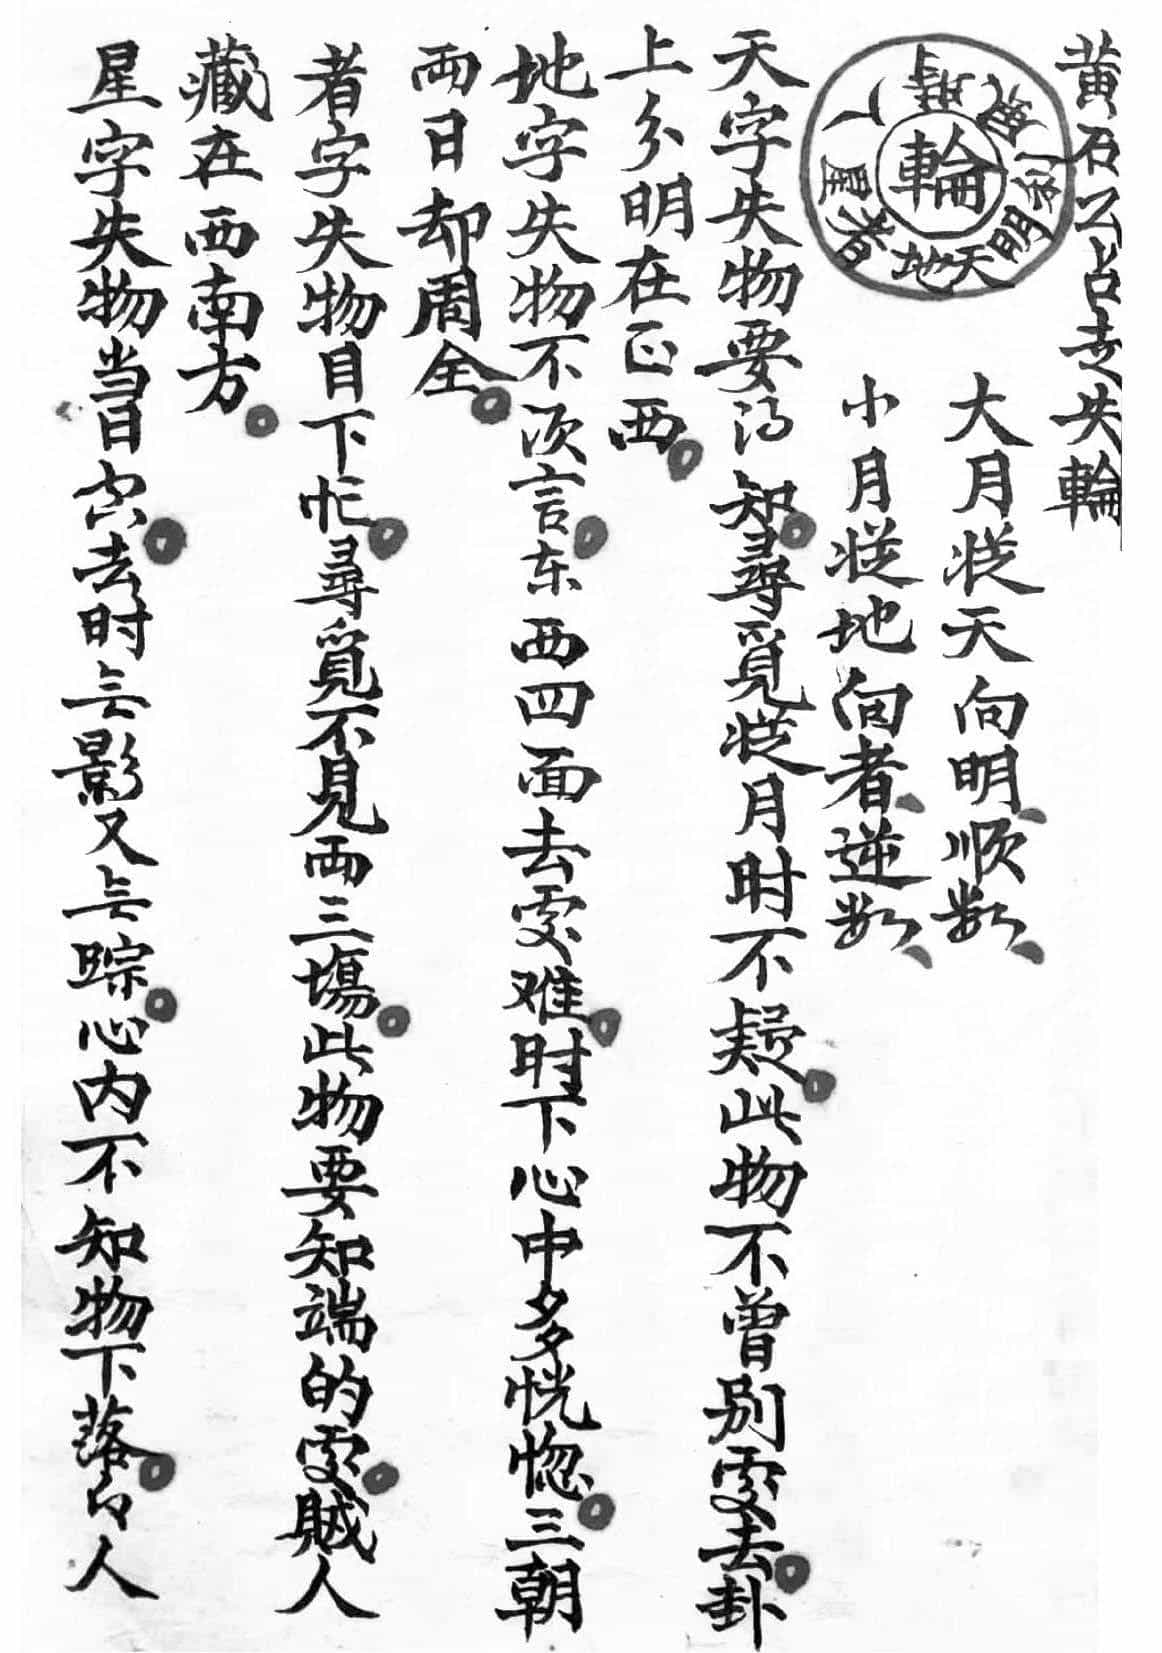 黄石公占走失輪
輪
天
地
者
星
人
明
大月從天向明順数
小月從地向者逆数
天字失物要得知尋覓從月时不疑此物不曾别处去卦
上分明在正西
地字失物不须言东西四面去处难时下心中多恍惚三朝
両日却周全
者字失物目下忙尋覓不見両三塲此物要知端的处賊人
藏在西南方
星字失物当日去时无影又无踪心内不知物下落人